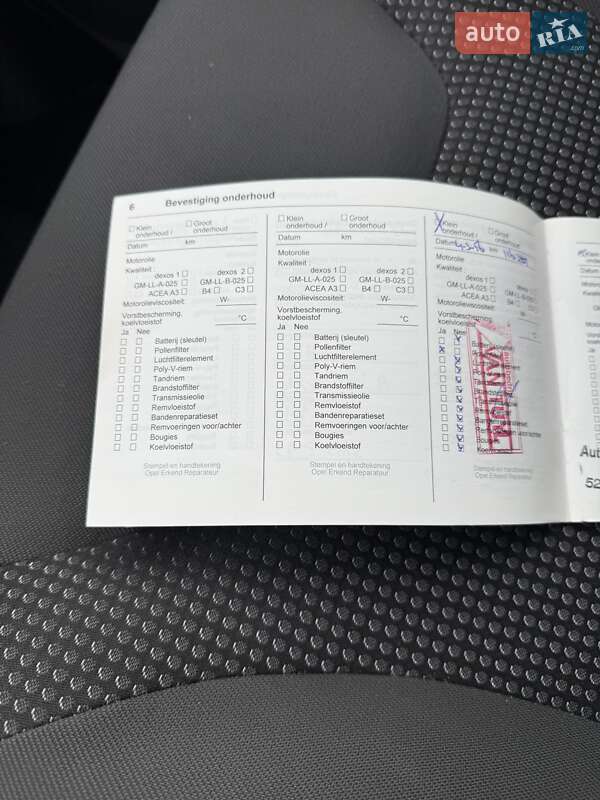 auto RIA.com
6 Bevestiging onderhoud
Klein onderhoud / Groot onderhoud
Datum km
Motorolie
Kwaliteit dexos 1
GM-LL-A-025 GM-LL-B-025
ACEA A3 B4 C3
Motorolieviscositeit: W-
Vorstbescherming, koelvloeistof °C
Ja Nee
Batterij (sleutel)
Pollenfilter
Luchtfilterelement
Poly-V-riem
Tandriem
Brandstoffilter
Transmissieolie
Remvloeistof
Bandenreparatieset
Remvoeringen voor/achter
Bougies
Koelvloeistof
Stempel en handtekening
Opel Erkend Reparateur
Klein onderhoud / Groot onderhoud
Datum km
Motorolie
Kwaliteit dexos 1 dexos 2
GM-LL-A-025 GM-LL-B-025
ACEA A3 B4 C3
Motorolieviscositeit: W-
Vorstbescherming, koelvloeistof °C
Ja Nee
Batterij (sleutel)
Pollenfilter
Luchtfilterelement
Poly-V-riem
Tandriem
Brandstoffilter
Transmissieolie
Remvloeistof
Bandenreparatieset
Remvoeringen voor/achter
Bougies
Koelvloeistof
Stempel en handtekening
Opel Erkend Reparateur
Klein onderhoud / Groot onderhoud
Datum km
Motorolie
Kwaliteit
dexos 1
GM-LL-A-025
ACEA A3 B4
Motorolieviscositeit:
Vorstbescherming, koelvloeistof °C
Ja Nee
Remvoeringen voor/achter
Stempel en handtekening
Opel Erkend Reparateur
52